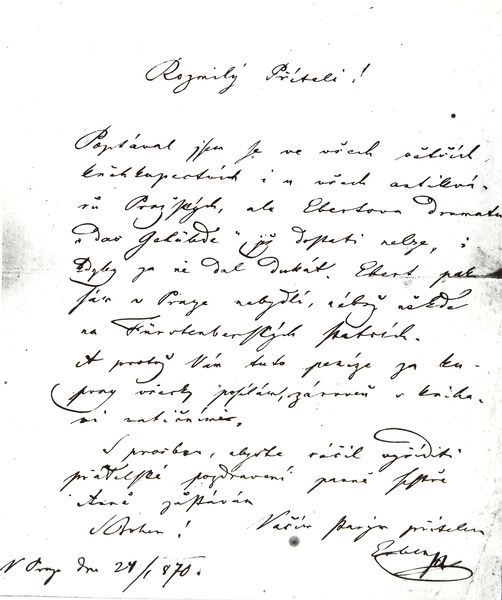 Rozmilý Příteli!
Poptával jsem se ve všech větších
kněhkupectvích i u všech antikvá-
rů Pražských, ale Ebertova dramatu
„das Gelübde" již dostati nelze, i
kdyby za ně dal dukát. Ebert pak
sám v Praze nebydlí, nébrž někde
na Fürstenberských statcích.
A protož Vám tuto peníze za ku-
py všecky posílám, zároveň s kniha-
mi
S prosbou, abyste ráčil vyříditi
přátelské pozdravení panně sestře
Anně zůstávám
S Bohem! Vaším starým přítelem
Erben
V Praze dne 24/1 870.